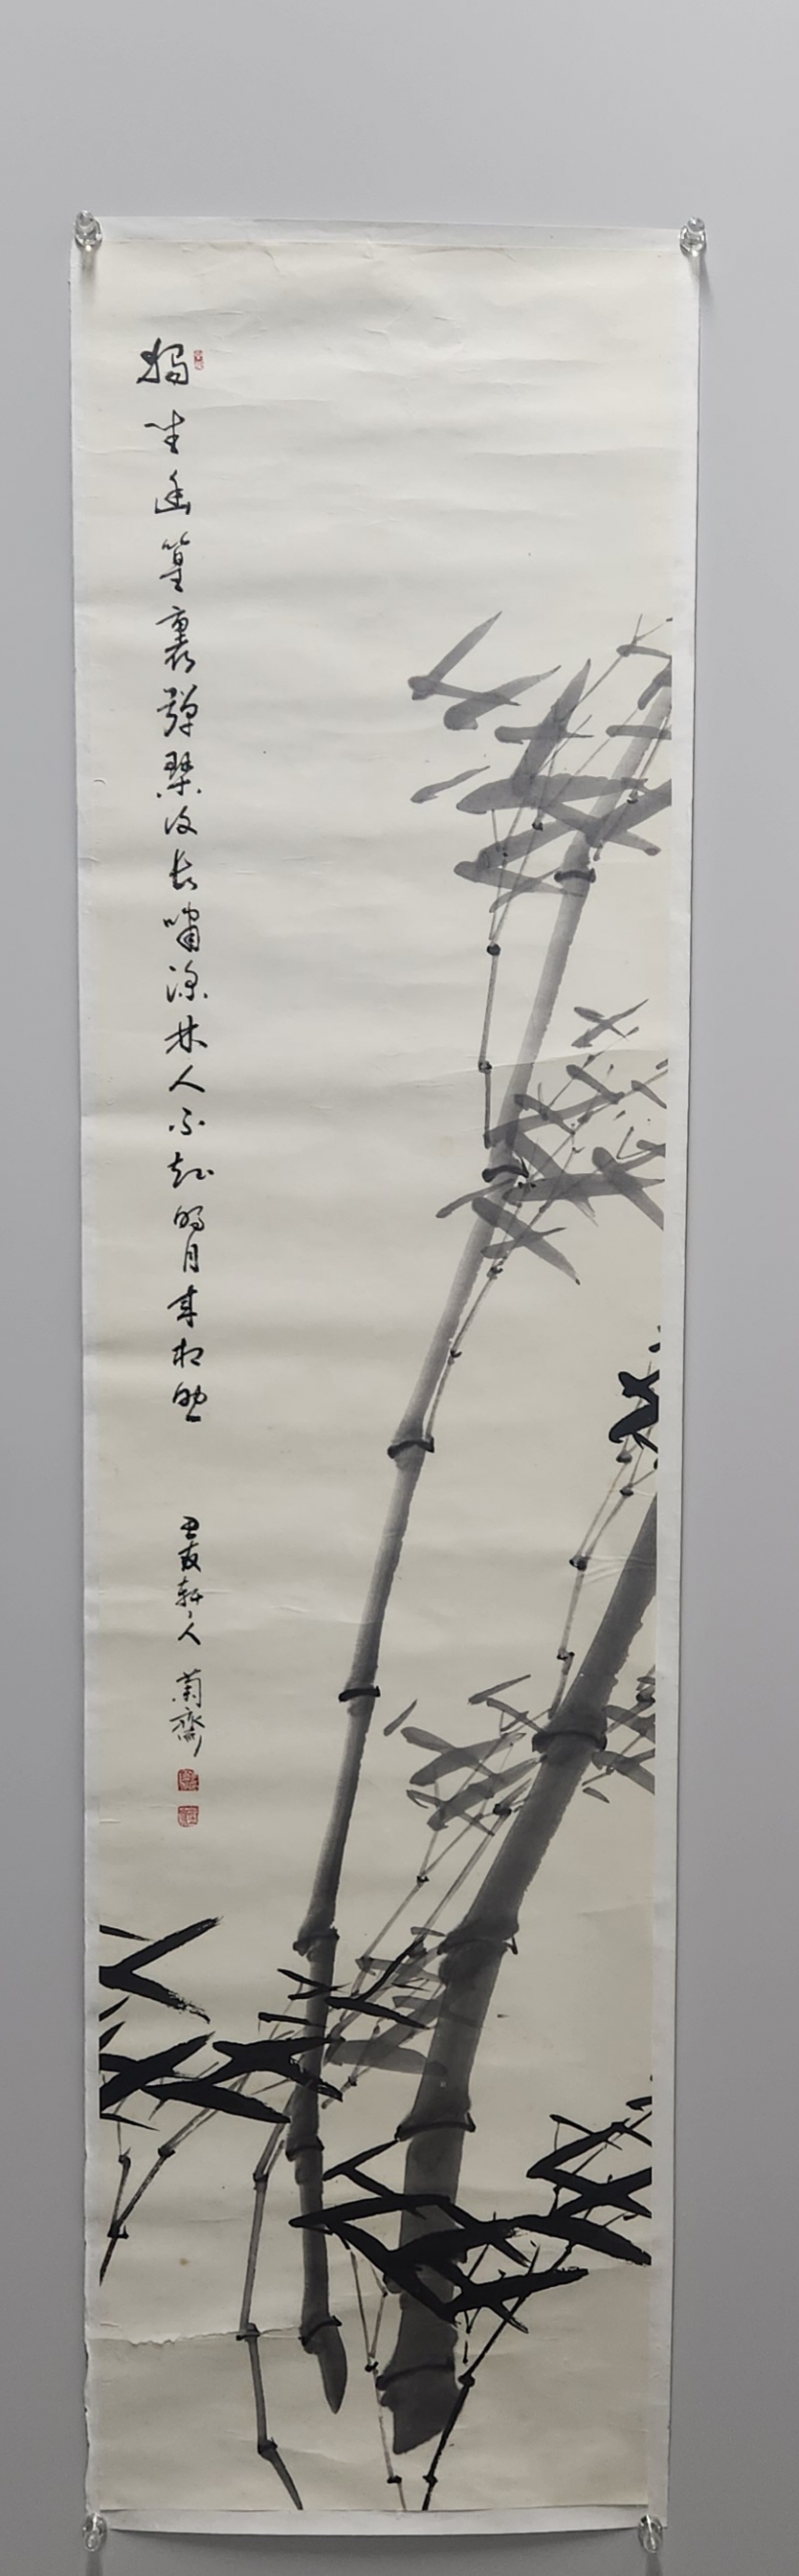 獨坐幽篁裏彈琴復長嘯深林人不知明月來相照
友軒人 齋